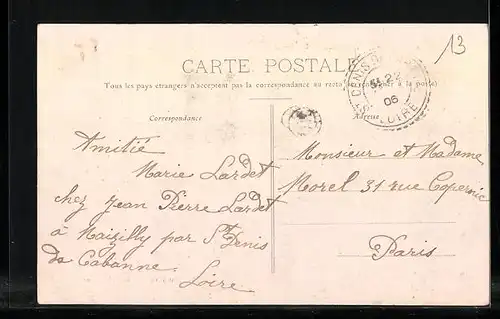 13
CARTE POSTALE
Tous les pays étrangers n'acceptent pas la correspondance au recto
Correspondance
Adresse
06
LOIRE
Amitié
Marie Lardet
chez Jean Pierre Lardet
à Maizilly par St Denis
de Cabanne.
Loire
Monsieur et Madame
Morel 31 rue Copernic
Paris